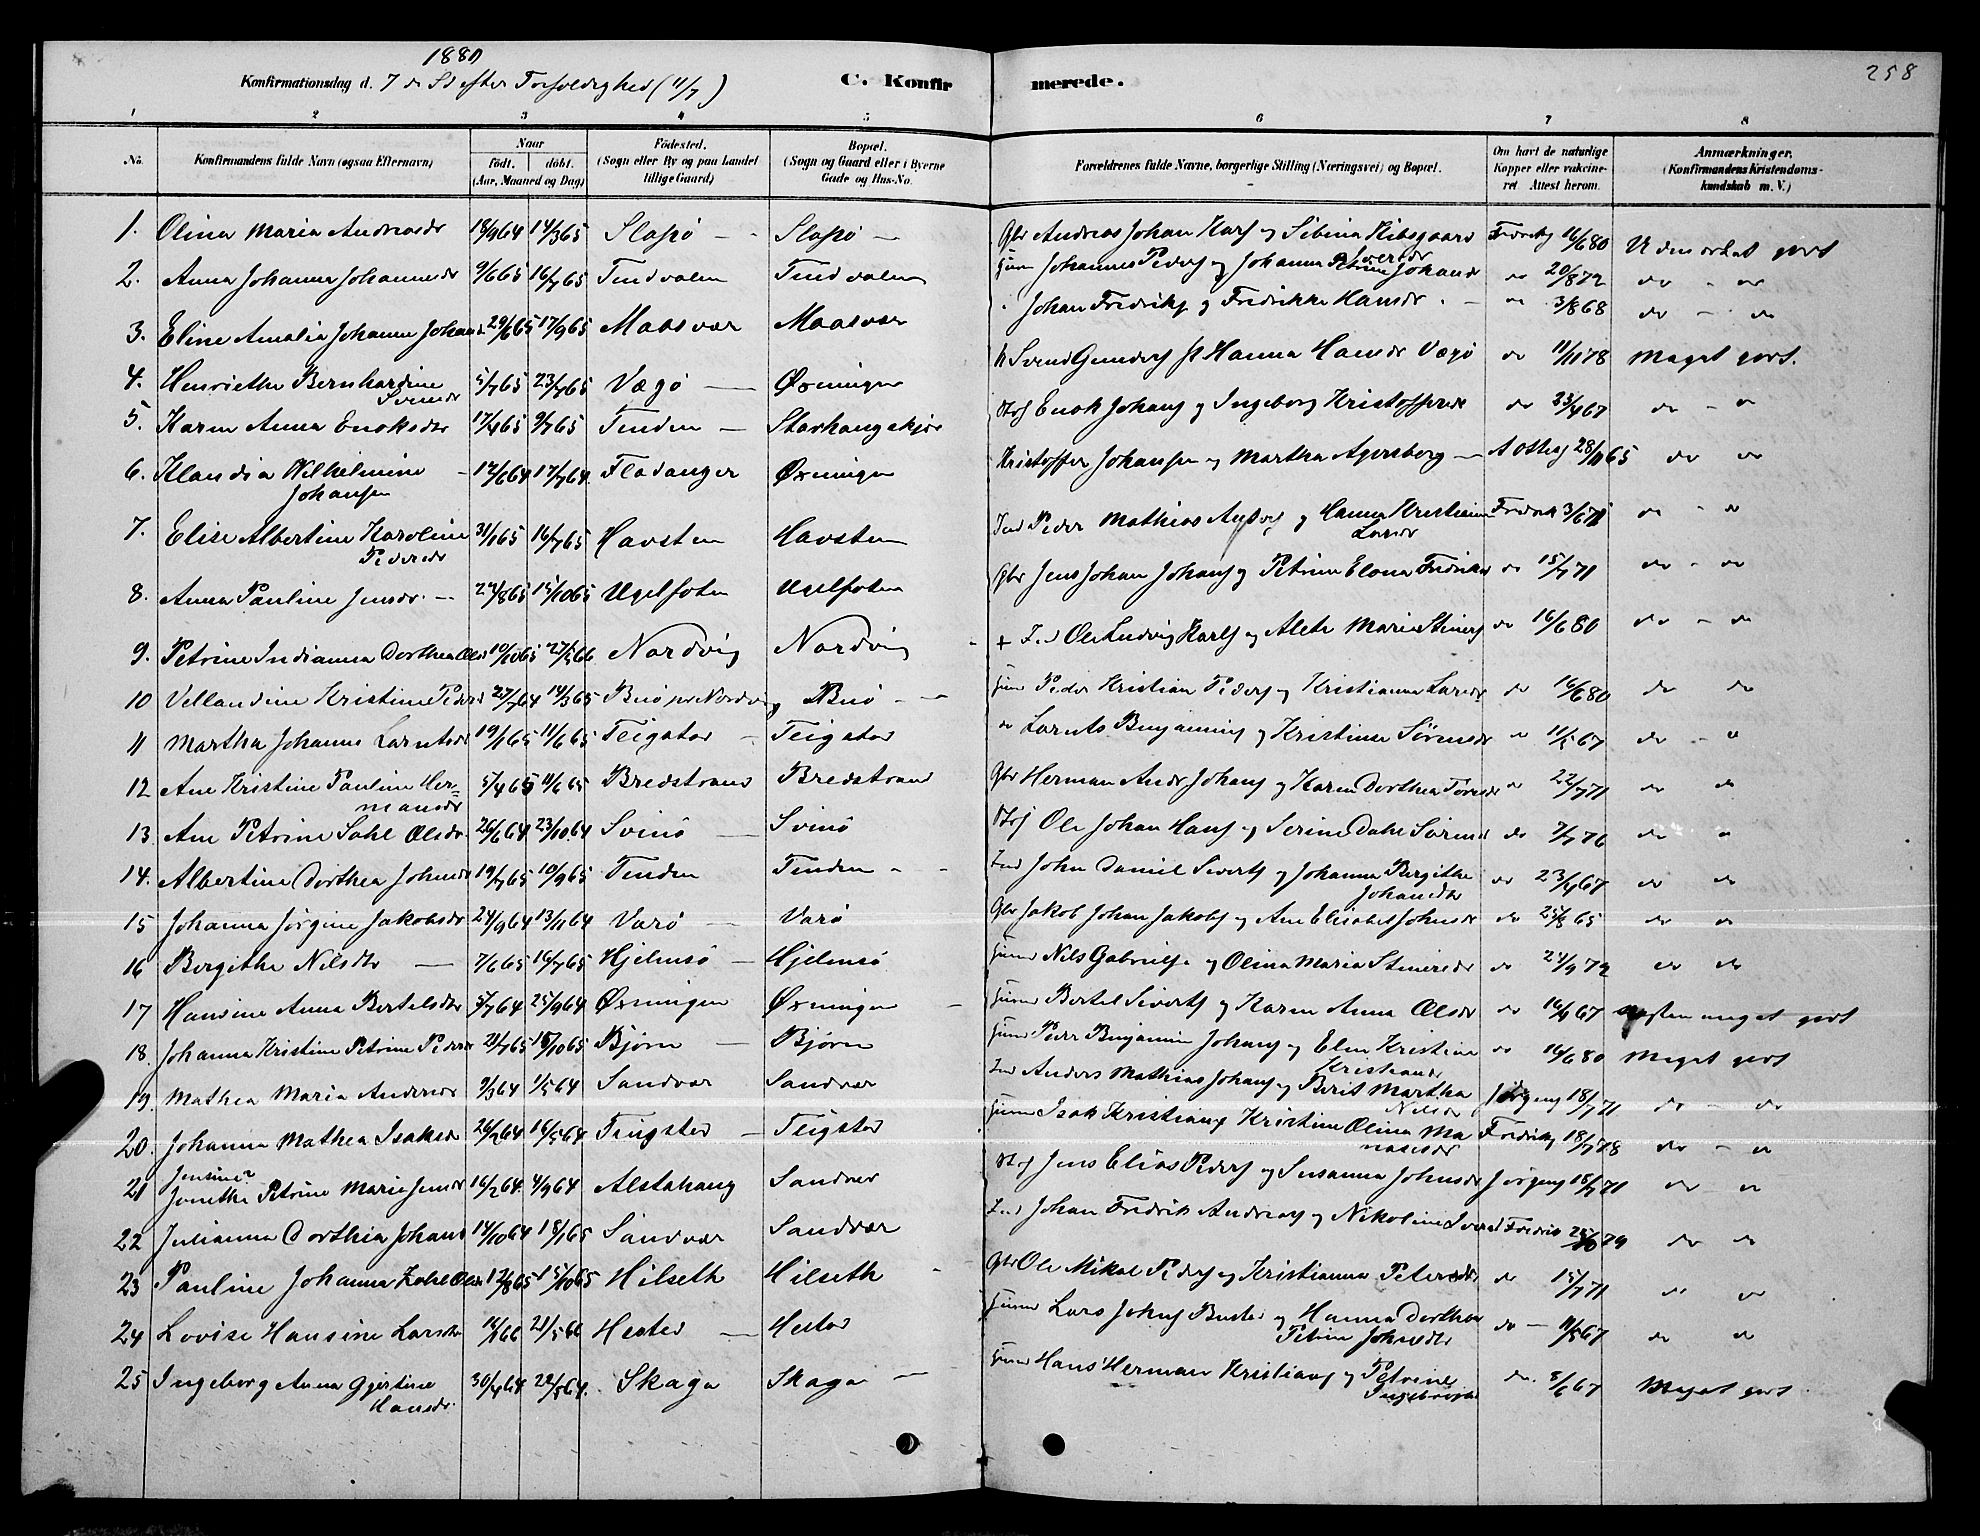 1880
258
Konfirmationsdag d. 7 de S efter Trefoldighed (11/7)
C. Konfirmerede.
1 2 3 4 5 6 7 8
No.
Konfirmandens fulde Navn (ogsaa Efternavn)
Naar
födt. döbt.
(Aar, Maaned og Dag)
Födested.
(Sogn eller By og paa Landet
tillige Gaard)
Bopæl.
(Sogn og Gaard eller i Byerne
Gade og Hus-No.
Forældrenes fulde Navne, borgerlige Stilling (Næringsvei) og Bopæl.
Om havt de naturlige
Kopper eller vakcineret
Attest herom.
Anmærkninger.
(Konfirmandens Kristendomskundskab
m. V.)
1. Olina Maria Andreasdr 18/9 64 14/3 65 Slapø Slapø Gbr Andreas Johan Karls og Sibina Hibsgaard Fredrik 16/6 80 Udmærket godt
2. Anna Johanna Johannesdr 9/6 65 16/7 65 Tindvalen Tindvalen Johannes Peders og Johanna Petrine Johansdr do 20/8 72 do do
3. Eline Amalia Johanna Johans 29/6 65 17/9 65 Maasvær Maasvær Johan Fredriks og Fredrikke Hansdr do 3/8 68 do do
4. Henriette Bernhardine Svendsdr 5/7 65 23/7 65 Vægø Øxningen Svend Gunders Hanna Hansdr Vægø do 11/11 78 Meget godt.
5. Karen Anna Enoksdtr 17/4 65 9/7 65 Tinden Storhaugskjær Enok Johans og Ingeborg Kristoffersdr do 23/4 67 do do
6. Klaudia Wilhelmine Johansen 12/6 64 17/7 64 Fladanger Øxningen Kristoffer Johansen og Martha Agersborg A Othes 28/11 65 do do
7. Elise Albertine Karoline Pedersdr 31/1 65 16/7 65 Havsten Havsten Ind Peder Mathias og Hanna Kristiane Larsdr Fredrik 3/6 71 do do
8. Anna Pauline Jensdr 24/8 65 15/10 65 Ugelfoten Ugelfoten Gbr Jens Johan Johans og Petrine Elena Fredriksdr do 15/7 71 do do
9. Petrine Indianna Dorthea Olsdr 10/10 65 27/ 66 Nordvig Nordvig + Ind Ole Ludvig Karls og Alete Marie Steiners do 16/6 80 do do
10 Vellaudine Kristine Peders 27/7 64 14/3 65 Buø pr Nordvig Buø Peder Kristian Peders og Kristianna Larsdr do 16/6 80 do do
11 Martha Johanne Larntsdr 19/1 65 11/6 65 Teigstad Teigstad do Larnts Benjamins og Kristine Sørensdr do 11/5 67 do do
12 Ane Kristine Pauline Hermansdr 5/4 65 11/6 65 Bredstrand Bredstrand Gbr Herman Andr Johans og Karen Dorthea Toresdr do 22/7 71 do do
13 Ane Petrine Sahl Olsdr 26/6 64 23/10 64 Svinø Svinø Ole Johan Hans og Serine Dahl Sørensdr do 7/7 76 do do
14. Albertine Dorthea Johnsdr 19/7 65 10/9 65 Tinden Tinden Ind John Daniel Siverts og Johanna Bergithe Johansdtr do 23/4 67 do do
15 Johanna Jørgine Jakobsdr 24/9 64 13/11 64 Varø Varø Gbr Jakob Johan Jakobs og Ane Elisabet Johnsdr do 25/8 65 do do
16 Bergithe Nilsdtr 7/6 65 16/7 65 Hjelmsø Hjelmsø Nils Gabriels og Olina Maria Steinersdr do 24/9 72 do do
17 Hansine Anna Bertelsdtr 5/7 64 25/9 64 Øxningen Øxningen Bertel Siverts og Karen Anna Olsdr do 16/4 67 næsten meget godt
18. Johanna Kristine Petrine Peders 21/7 65 15/10 65 Bjørn Bjørn Peder Benjamin Johans og Elen Kristine Kristiansdr do 16/6 80 Meget godt
19. Mathea Maria Andersdr 9/3 64 1/5 64 Sandvær Sandvær Ind Anders Mathias Johans og Berit Martha Nilsdr Jørgens 18/7 71 do do
20. Johanna Mathea Isaksdr 26/2 64 16/5 64 Teigstad Teigstad Isak Kristians Kristine Olina Manasesdr Fredriks 18/7 78 do do
21 Jensine? Jonetha Petrine Marie Jensdr 16/2 64 4/9 64 Alstahaug Sandvær Jens Elias Peders og Susanna Johnsdr Jørgens 18/7 71 do do
22 Julianna Dorthea Johans 14/10 64 18/1 65 Sandvær Sandvær Ind Johan Fredrik Andreas og Nikoline Iversd Fredrik 79 do do
23 Pauline Johanna Zahl Olsdr 12/8 65 15/10 65 Hilseth Hilseth Gbr Ole Mikal Peders og Kristianna Petersdtr do 15/7 71 do do
24 Lovise Hansine Larsdtr 14/1 66 21/5 66 Hestad Hestad Lars Johns Bustad og Hanna Dorthea Petrine Johnsdtr do 11/5 67 do do
25 Ingeborg Anna Gjertine Hansdr. 30/4 64 22/5 64 Skaga Skaga Hans Herman Kristians og Petrine Ingebrigtsd do 8/6 67 Meget godt